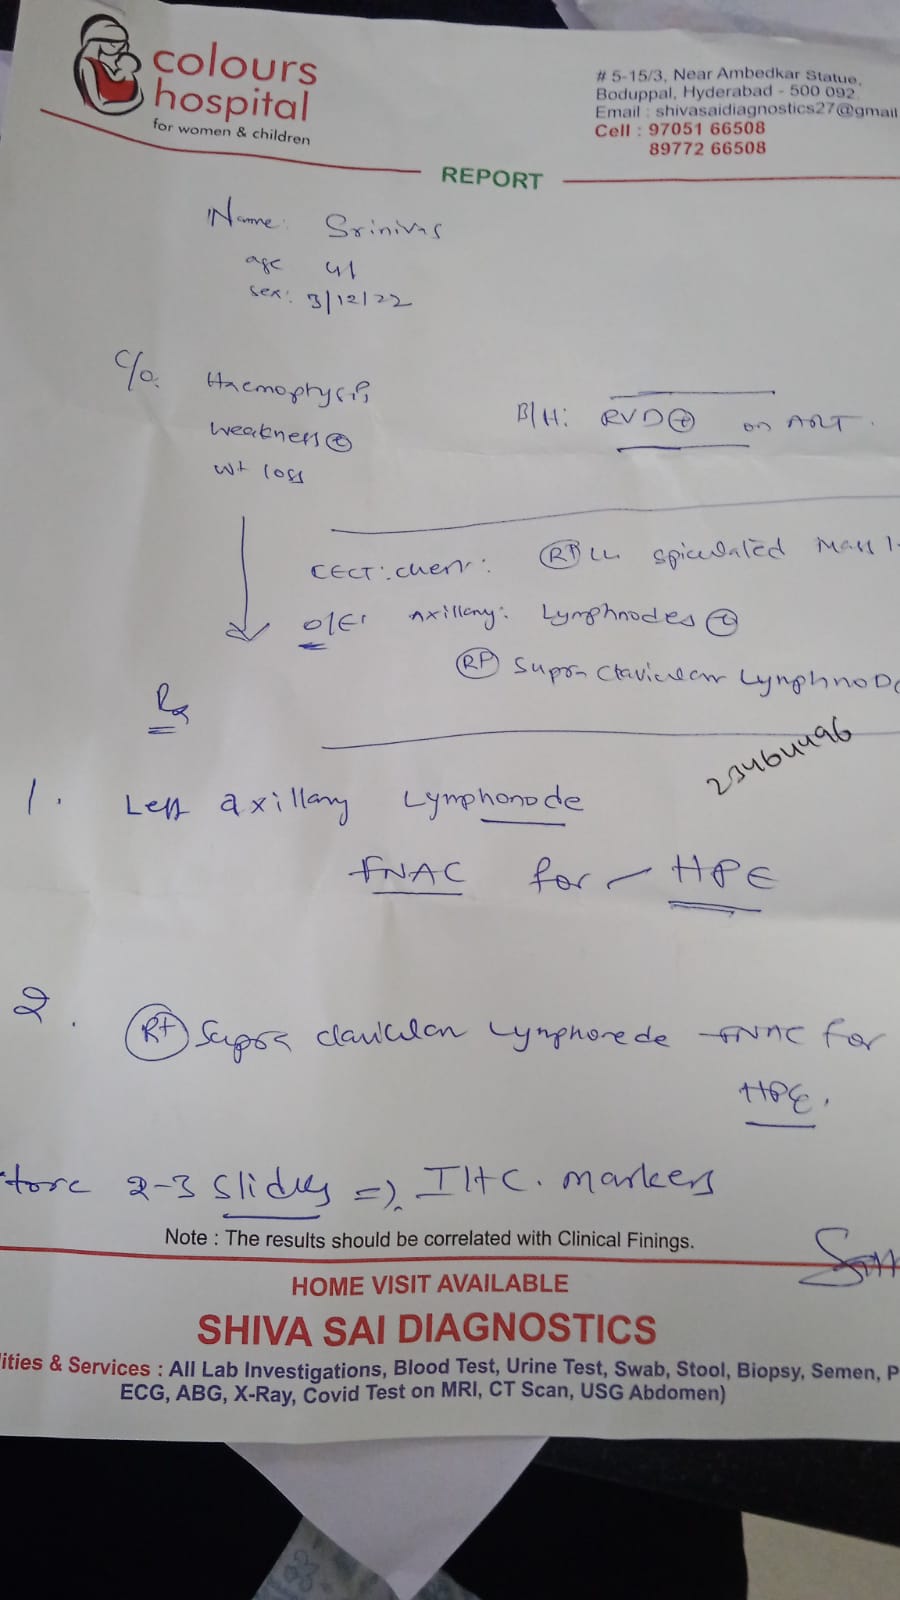 colours
hospital
for women & children
# 5-15/3, Near Ambedkar Statue,
Boduppal, Hyderabad - 500 092
Email : shivasaidiagnostics27@gmail
Cell : 97051 66508
89772 66508
REPORT
Name: Srinivas
age 41
sex: 3/12/22
C/o. Haemoptysis
weakness ⊕
wt loss
B/H: RVD ⊕ on ART.
CECT: chest: Rt LL spiculated Mass
O/E: Axillary: Lymphnodes ⊕
Rt Supra Clavicular Lymphnod
23464496
Rx
1. Left axillary Lymphonode
FNAC for - HPE
2. Rt Supra clavicular Lymphonode FNAC for
HPE.
store 2-3 slides => IHC. markers
Note : The results should be correlated with Clinical Finings.
HOME VISIT AVAILABLE
SHIVA SAI DIAGNOSTICS
lities & Services : All Lab Investigations, Blood Test, Urine Test, Swab, Stool, Biopsy, Semen, P
ECG, ABG, X-Ray, Covid Test on MRI, CT Scan, USG Abdomen)